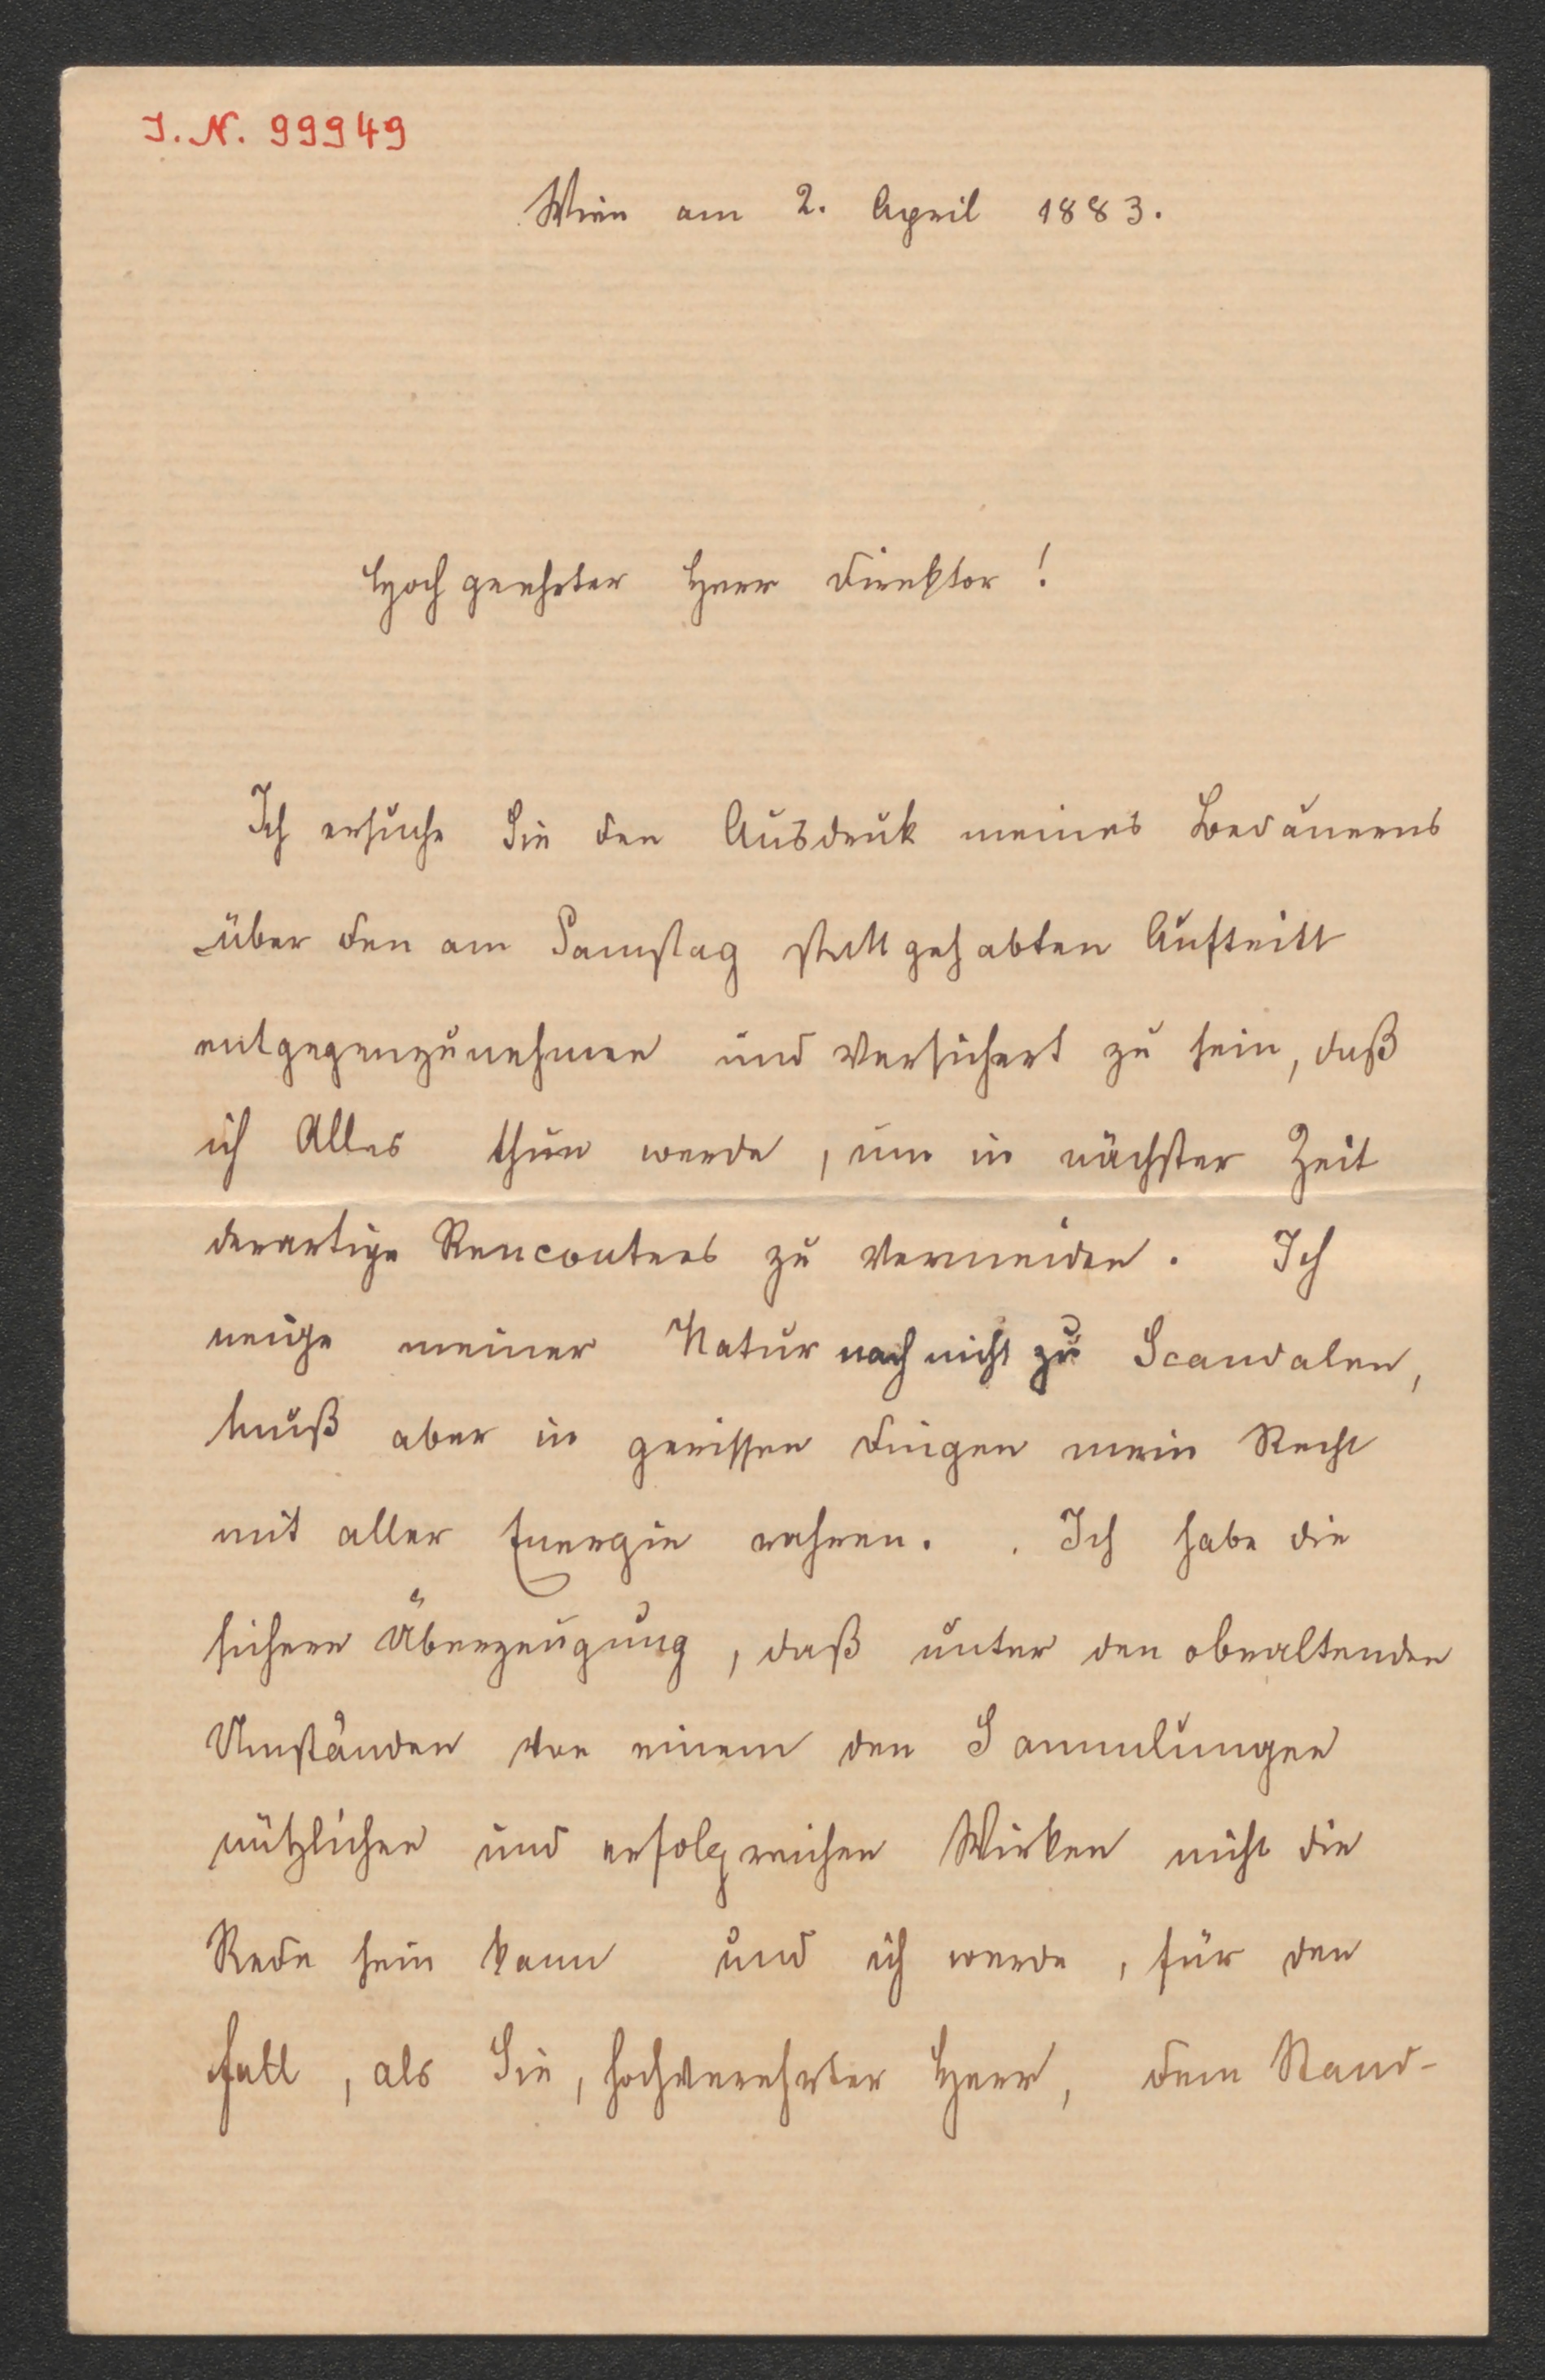 I. N. 99949
Wien am 2. April 1883.
Hochgeehrter Herr Direktor!
Ich ersuche Sie den Ausdruk meines Bedauerns
über den am Samstag stattgehabten Auftritt
entgegenzunehmen und versichert zu sein, daß
ich Alles thun werde, um in nächster Zeit
derartige Rencontres zu vermeiden. Ich
neige meiner Natur nach nicht zu Scandalen,
muß aber in gewissen Dingen mein Recht
mit aller Energie wahren. . Ich habe die
sichere Überzeugung, daß unter den obwaltenden
Umständen von einem den Sammlungen
nützlichen und erfolgreichen Wirken nicht die
Rede sein kann und ich werde, für den
Fall, als Sie, hochverehrter Herr, dem Stand-